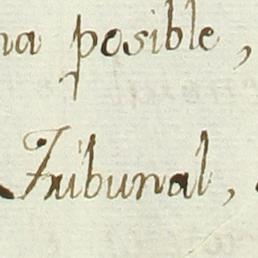 na posible,
Tribunal,